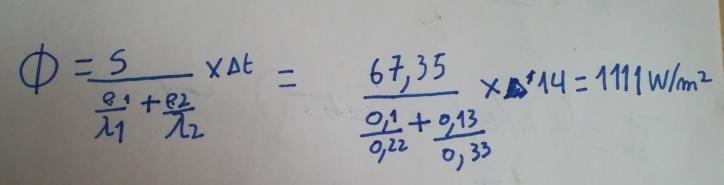 Φ = S / (e1/λ1 + e2/λ2) x Δt = 67,35 / (0,1/0,22 + 0,13/0,33) x 14 = 1111 W/m²